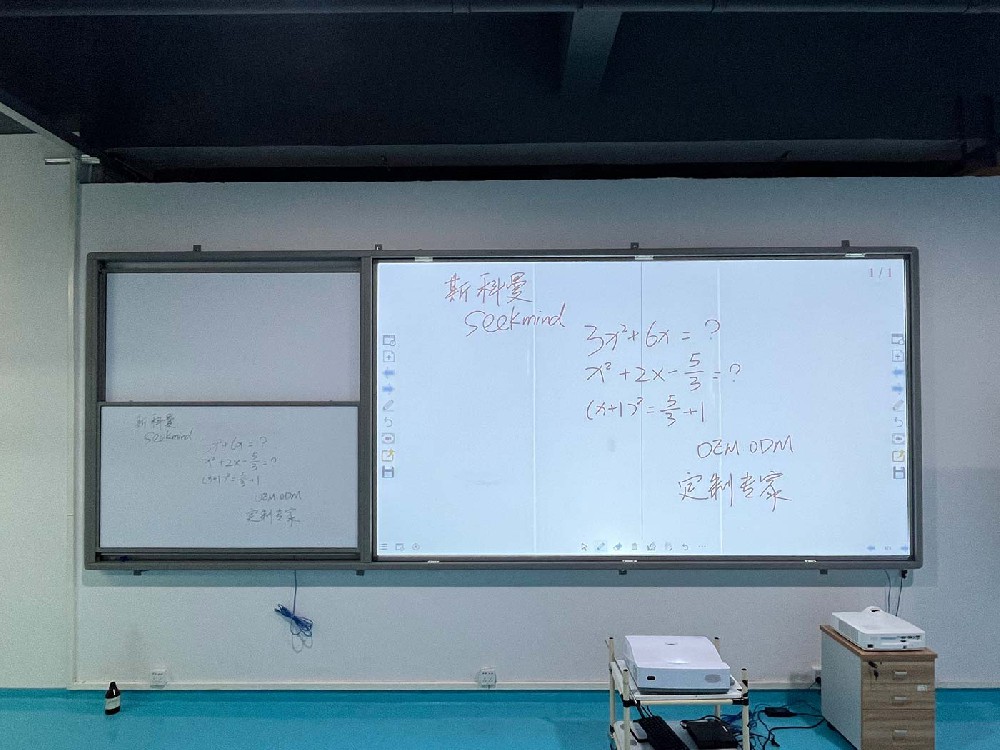 斯科曼
seekmind
3x²+6x=?
x²+2x-5/3=?
(x+1)²=5/3+1
OEM ODM
定制专家
1/1
斯科曼
seekmind
x²+6x=?
x²+2x-5/3=?
(x+1)²=5/3+1
OEM ODM
定制专家